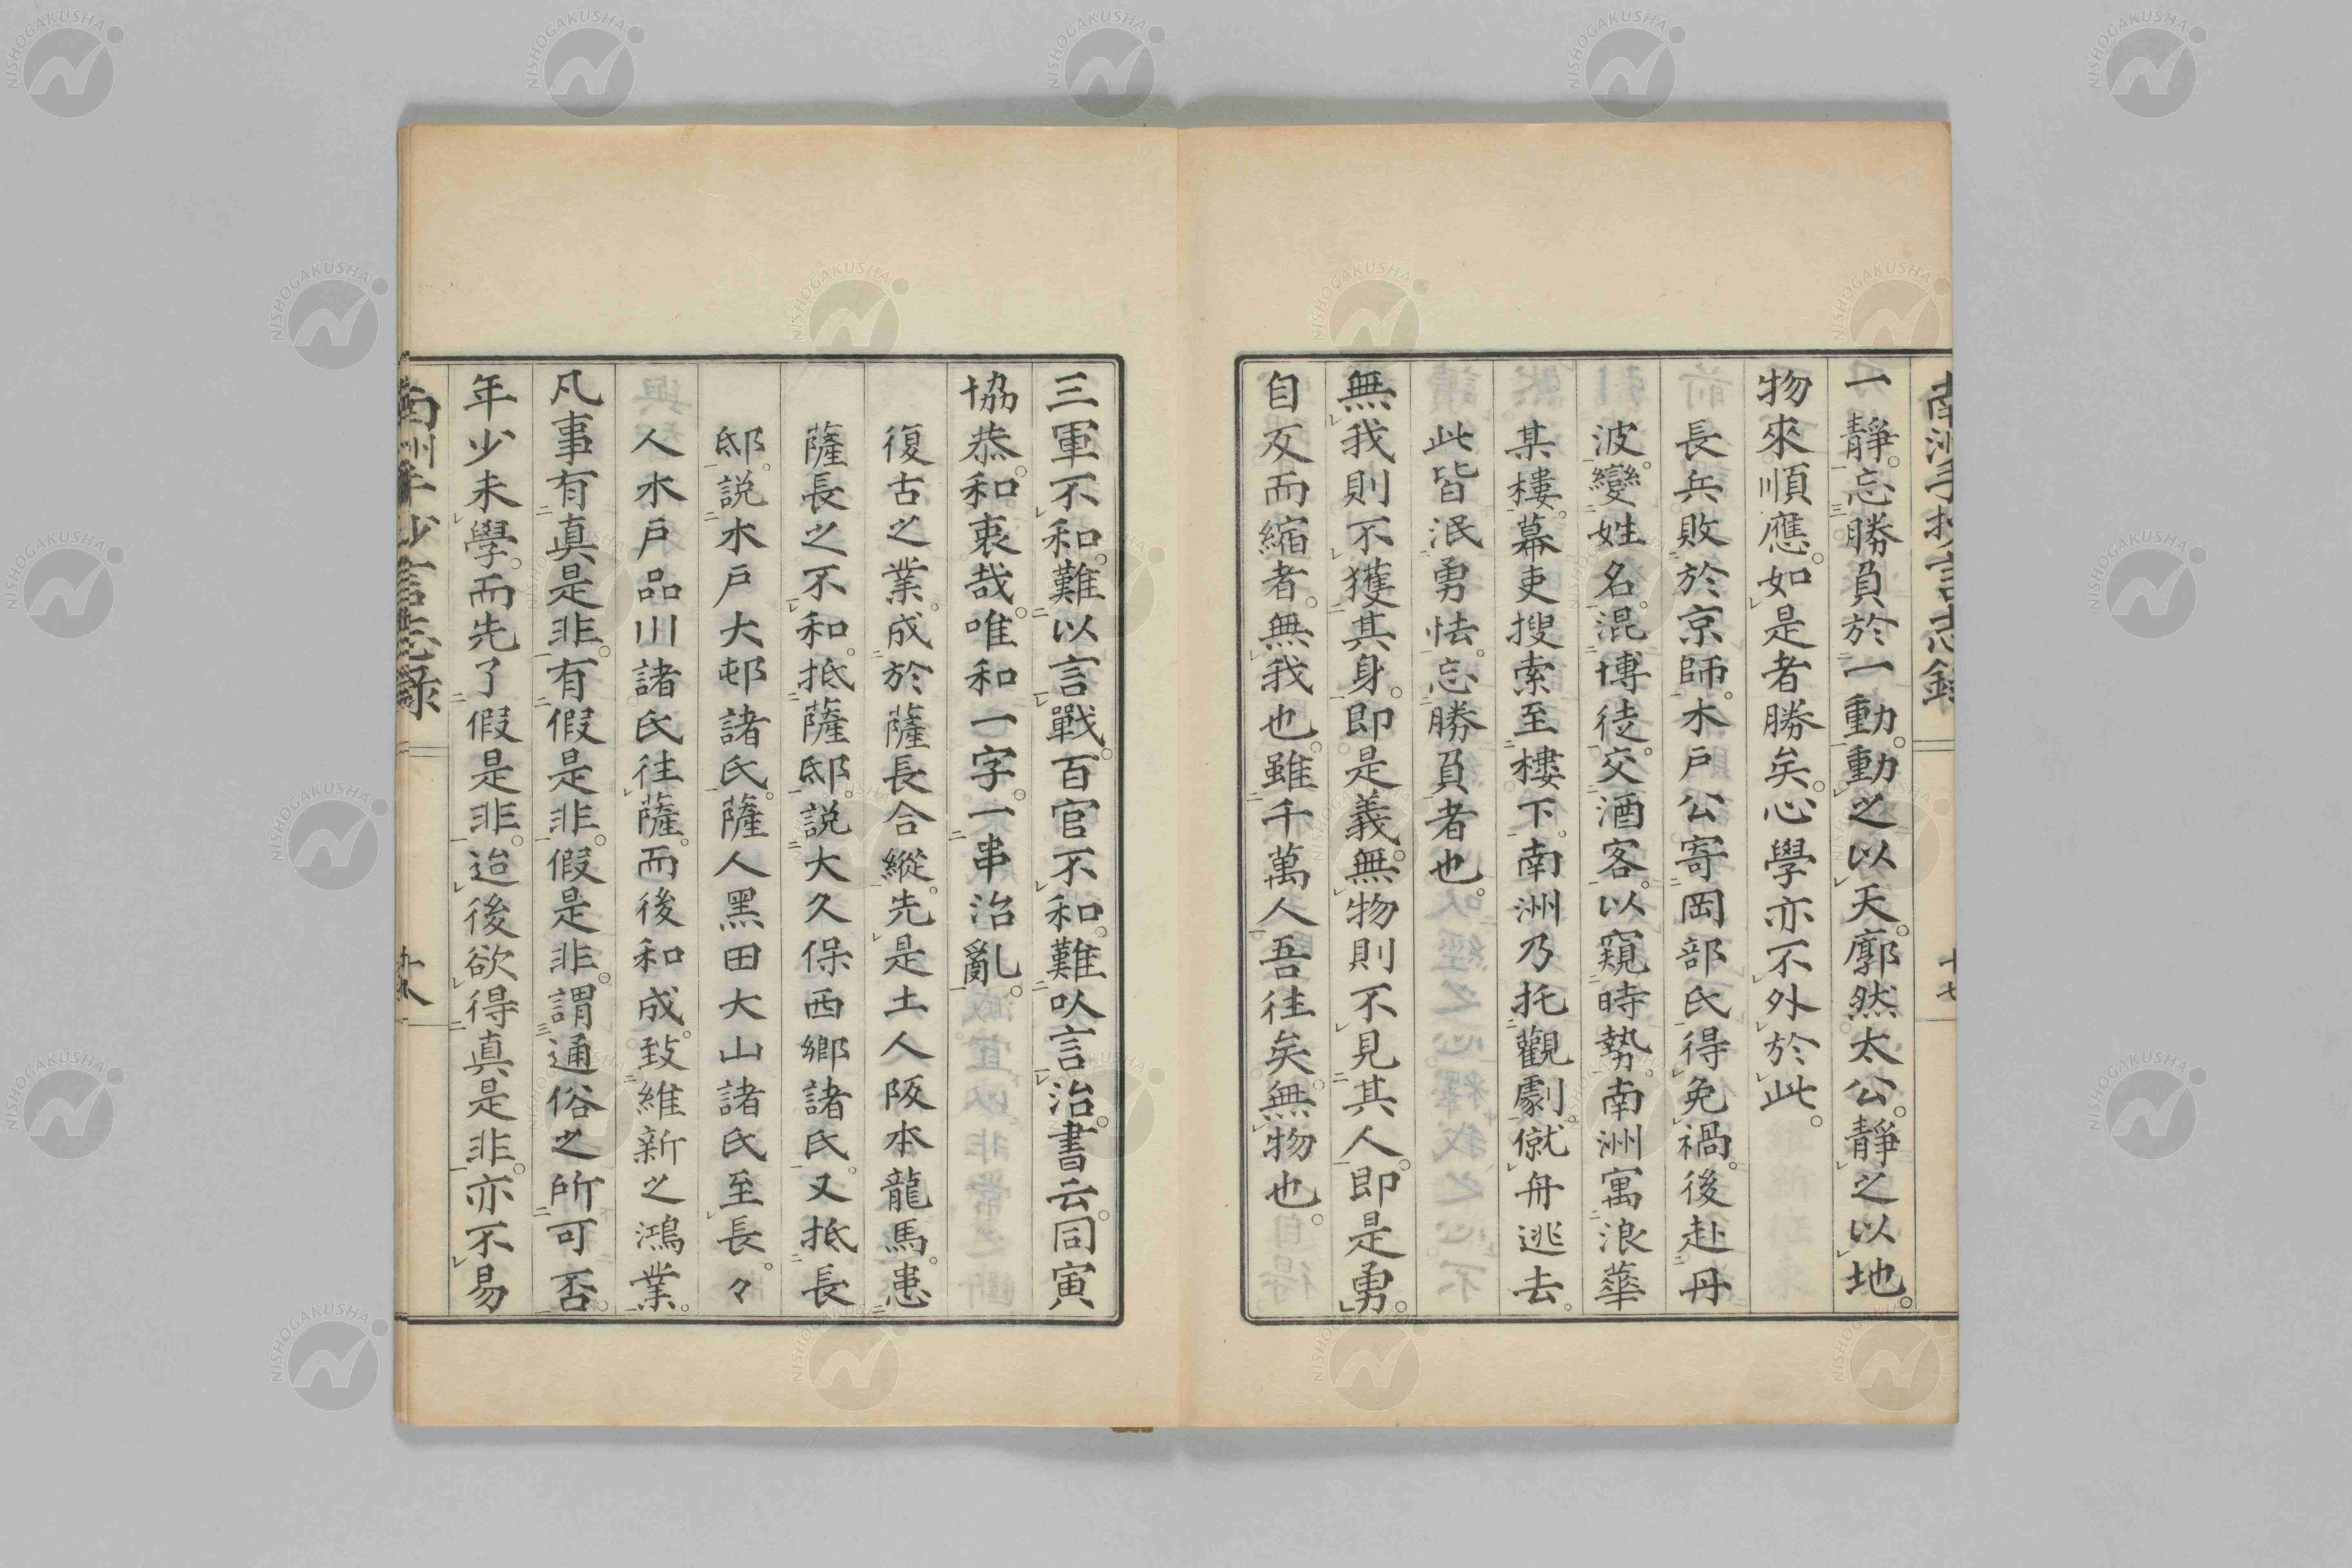 南洲手抄言志錄
十七
一靜。忘勝負於一動。動之以天。廓然太公。靜之以地。
物來順應。如是者勝矣。心學亦不外於此。
長兵敗於京師。木戶公寄岡部氏得免禍。後赴丹
波。變姓名。混博徒。交酒客。以窺時勢。南洲寓浪華
某樓。幕吏搜索至樓下。南洲乃托觀劇。僦舟逃去。
此皆泯勇怯。忘勝負者也。
無我則不獲其身。即是義。無物則不見其人。即是勇。
自反而縮者。無我也。雖千萬人吾往矣。無物也。
三軍不和。難以言戰。百官不和。難以言治。書云。同寅
協恭。和衷哉。唯和一字。一串治亂。
復古之業。成於薩長合縱。先是土人阪本龍馬。患
薩長之不和。抵薩邸。説大久保西鄉諸氏。又抵長
邸。説水戶大邨諸氏。薩人黑田大山諸氏至長。々
人水戶品川諸氏往薩。而後和成。致維新之鴻業。
凡事有真是非。有假是非。假是非。謂通俗之所可否。
年少未學。而先了假是非。迨後欲得真是非。亦不易
南洲手抄言志錄